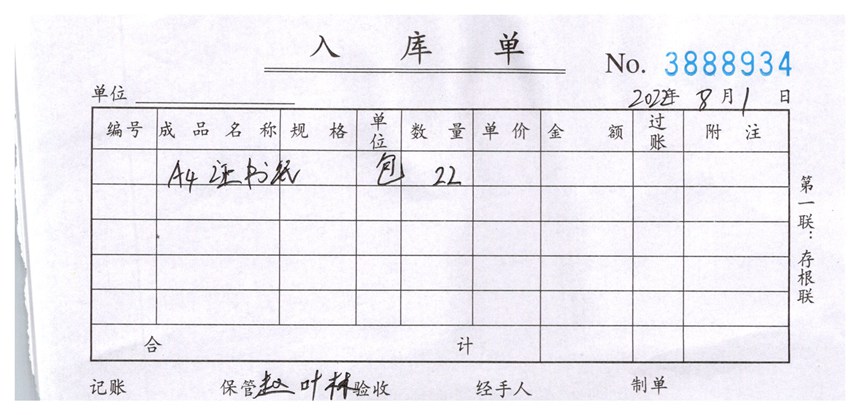 入库单
No. 3888934
单位 2022年 8月1日
编号 成品名称 规格 单位 数量 单价 金额 过账 附注
A4证书纸 包 22
合计
第一联：存根联
记账 保管 赵叶林 验收 经手人 制单